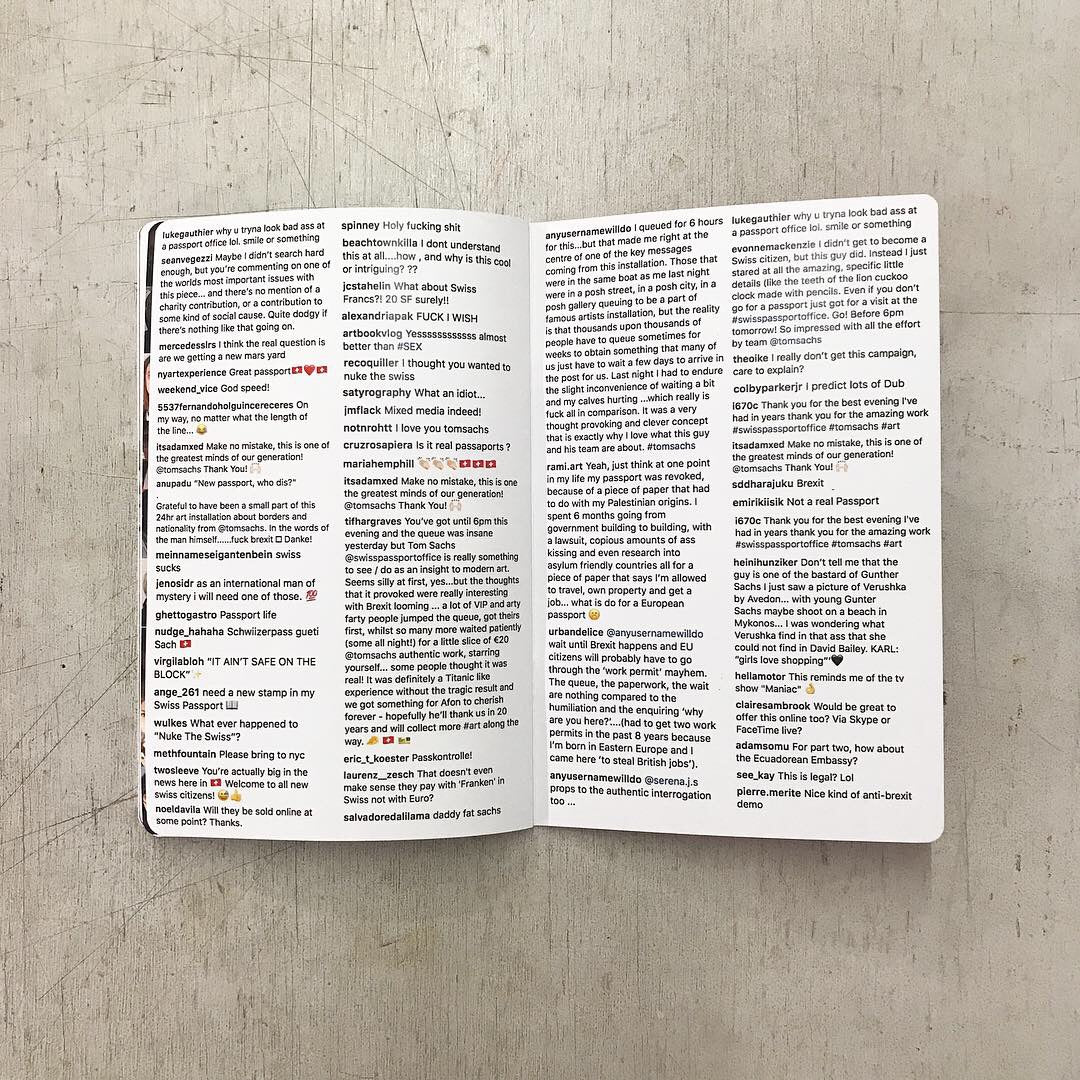 lukegauthier why u tryna look bad ass at
a passport office lol. smile or something
seanvegezzi Maybe I didn't search hard
enough, but you're commenting on one of
the worlds most important issues with
this piece... and there's no mention of a
charity contribution, or a contribution to
some kind of social cause. Quite dodgy if
there's nothing like that going on.
mercedesslrs I think the real question is
are we getting a new mars yard
nyartexperience Great passport🇨🇭❤️🇨🇭
weekend_vice God speed!
5537fernandoholguincereceres On
my way, no matter what the length of
the line... 😂
itsadamxed Make no mistake, this is one of
the greatest minds of our generation!
@tomsachs Thank You! 🙌🏻
anupadu "New passport, who dis?"
.
Grateful to have been a small part of this
24hr art installation about borders and
nationality from @tomsachs. In the words of
the man himself......fuck brexit □ Danke!
meinnameseigantenbein swiss
sucks
jenosidr as an international man of
mystery i will need one of those. 💯
ghettogastro Passport life
nudge_hahaha Schwiizerpass gueti
Sach 🇨🇭
virgilabloh "IT AIN'T SAFE ON THE
BLOCK"✨
ange_261 need a new stamp in my
Swiss Passport 📖
wulkes What ever happened to
"Nuke The Swiss"?
methfountain Please bring to nyc
twosleeve You're actually big in the
news here in 🇨🇭 Welcome to all new
swiss citizens! 😅👍
noeldavila Will they be sold online at
some point? Thanks.
spinney Holy fucking shit
beachtownkilla I dont understand
this at all....how , and why is this cool
or intriguing? ??
jcstahelin What about Swiss
Francs?! 20 SF surely!!
alexandriapak FUCK I WISH
artbookvlog Yesssssssssssss almost
better than #SEX
recoquiller I thought you wanted to
nuke the swiss
satyrography What an idiot...
jmflack Mixed media indeed!
notnrohtt I love you tomsachs
cruzrosapiera Is it real passaports ?
mariahemphill 👏🏻👏🏻👏🏻🇨🇭🇨🇭🇨🇭
itsadamxed Make no mistake, this is one
the greatest minds of our generation!
@tomsachs Thank You! 🙌🏻
tifhargraves You've got until 6pm this
evening and the queue was insane
yesterday but Tom Sachs
@swisspassportoffice is really something
to see / do as an insight to modern art.
Seems silly at first, yes...but the thoughts
that it provoked were really interesting
with Brexit looming ... a lot of VIP and arty
farty people jumped the queue, got theirs
first, whilst so many more waited patiently
(some all night!) for a little slice of €20
@tomsachs authentic work, starring
yourself... some people thought it was
real! It was definitely a Titanic like
experience without the tragic result and
we got something for Afon to cherish
forever - hopefully he'll thank us in 20
years and will collect more #art along the
way. 🧀 🇨🇭 💶
eric_t_koester Passkontrolle!
laurenz__zesch That doesn't even
make sense they pay with 'Franken' in
Swiss not with Euro?
salvadoredalilama daddy fat sachs
anyusernamewilldo I queued for 6 hours
for this...but that made me right at the
centre of one of the key messages
coming from this installation. Those that
were in the same boat as me last night
were in a posh street, in a posh city, in a
posh gallery queuing to be a part of
famous artists installation, but the reality
is that thousands upon thousands of
people have to queue sometimes for
weeks to obtain something that many of
us just have to wait a few days to arrive in
the post for us. Last night I had to endure
the slight inconvenience of waiting a bit
and my calves hurting ...which really is
fuck all in comparison. It was a very
thought provoking and clever concept
that is exactly why I love what this guy
and his team are about. #tomsachs
rami.art Yeah, just think at one point
in my life my passport was revoked,
because of a piece of paper that had
to do with my Palestinian origins. I
spent 6 months going from
government building to building, with
a lawsuit, copious amounts of ass
kissing and even research into
asylum friendly countries all for a
piece of paper that says I'm allowed
to travel, own property and get a
job... what is do for a European
passport 🙁
urbandelice @anyusernamewilldo
wait until Brexit happens and EU
citizens will probably have to go
through the 'work permit' mayhem.
The queue, the paperwork, the wait
are nothing compared to the
humiliation and the enquiring 'why
are you here?'....(had to get two work
permits in the past 8 years because
I'm born in Eastern Europe and I
came here 'to steal British jobs').
anyusernamewilldo @serena.j.s
props to the authentic interrogation
too ...
lukegauthier why u tryna look bad ass at
a passport office lol. smile or something
evonnemackenzie I didn't get to become a
Swiss citizen, but this guy did. Instead I just
stared at all the amazing, specific little
details (like the teeth of the lion cuckoo
clock made with pencils. Even if you don't
go for a passport just got for a visit at the
#swisspassportoffice. Go! Before 6pm
tomorrow! So impressed with all the effort
by team @tomsachs
theoike I really don't get this campaign,
care to explain?
colbyparkerjr I predict lots of Dub
i670c Thank you for the best evening I've
had in years thank you for the amazing work
#swisspassportoffice #tomsachs #art
itsadamxed Make no mistake, this is one of
the greatest minds of our generation!
@tomsachs Thank You! 🙌🏻
sddharajuku Brexit
emirikiisik Not a real Passport
i670c Thank you for the best evening I've
had in years thank you for the amazing work
#swisspassportoffice #tomsachs #art
heinihunziker Don't tell me that the
guy is one of the bastard of Gunther
Sachs I just saw a picture of Verushka
by Avedon... with young Gunter
Sachs maybe shoot on a beach in
Mykonos... I was wondering what
Verushka find in that ass that she
could not find in David Bailey. KARL:
"girls love shopping"'🖤
hellamotor This reminds me of the tv
show "Maniac" 👌
clairesambrook Would be great to
offer this online too? Via Skype or
FaceTime live?
adamsomu For part two, how about
the Ecuadorean Embassy?
see_kay This is legal? Lol
pierre.merite Nice kind of anti-brexit
demo